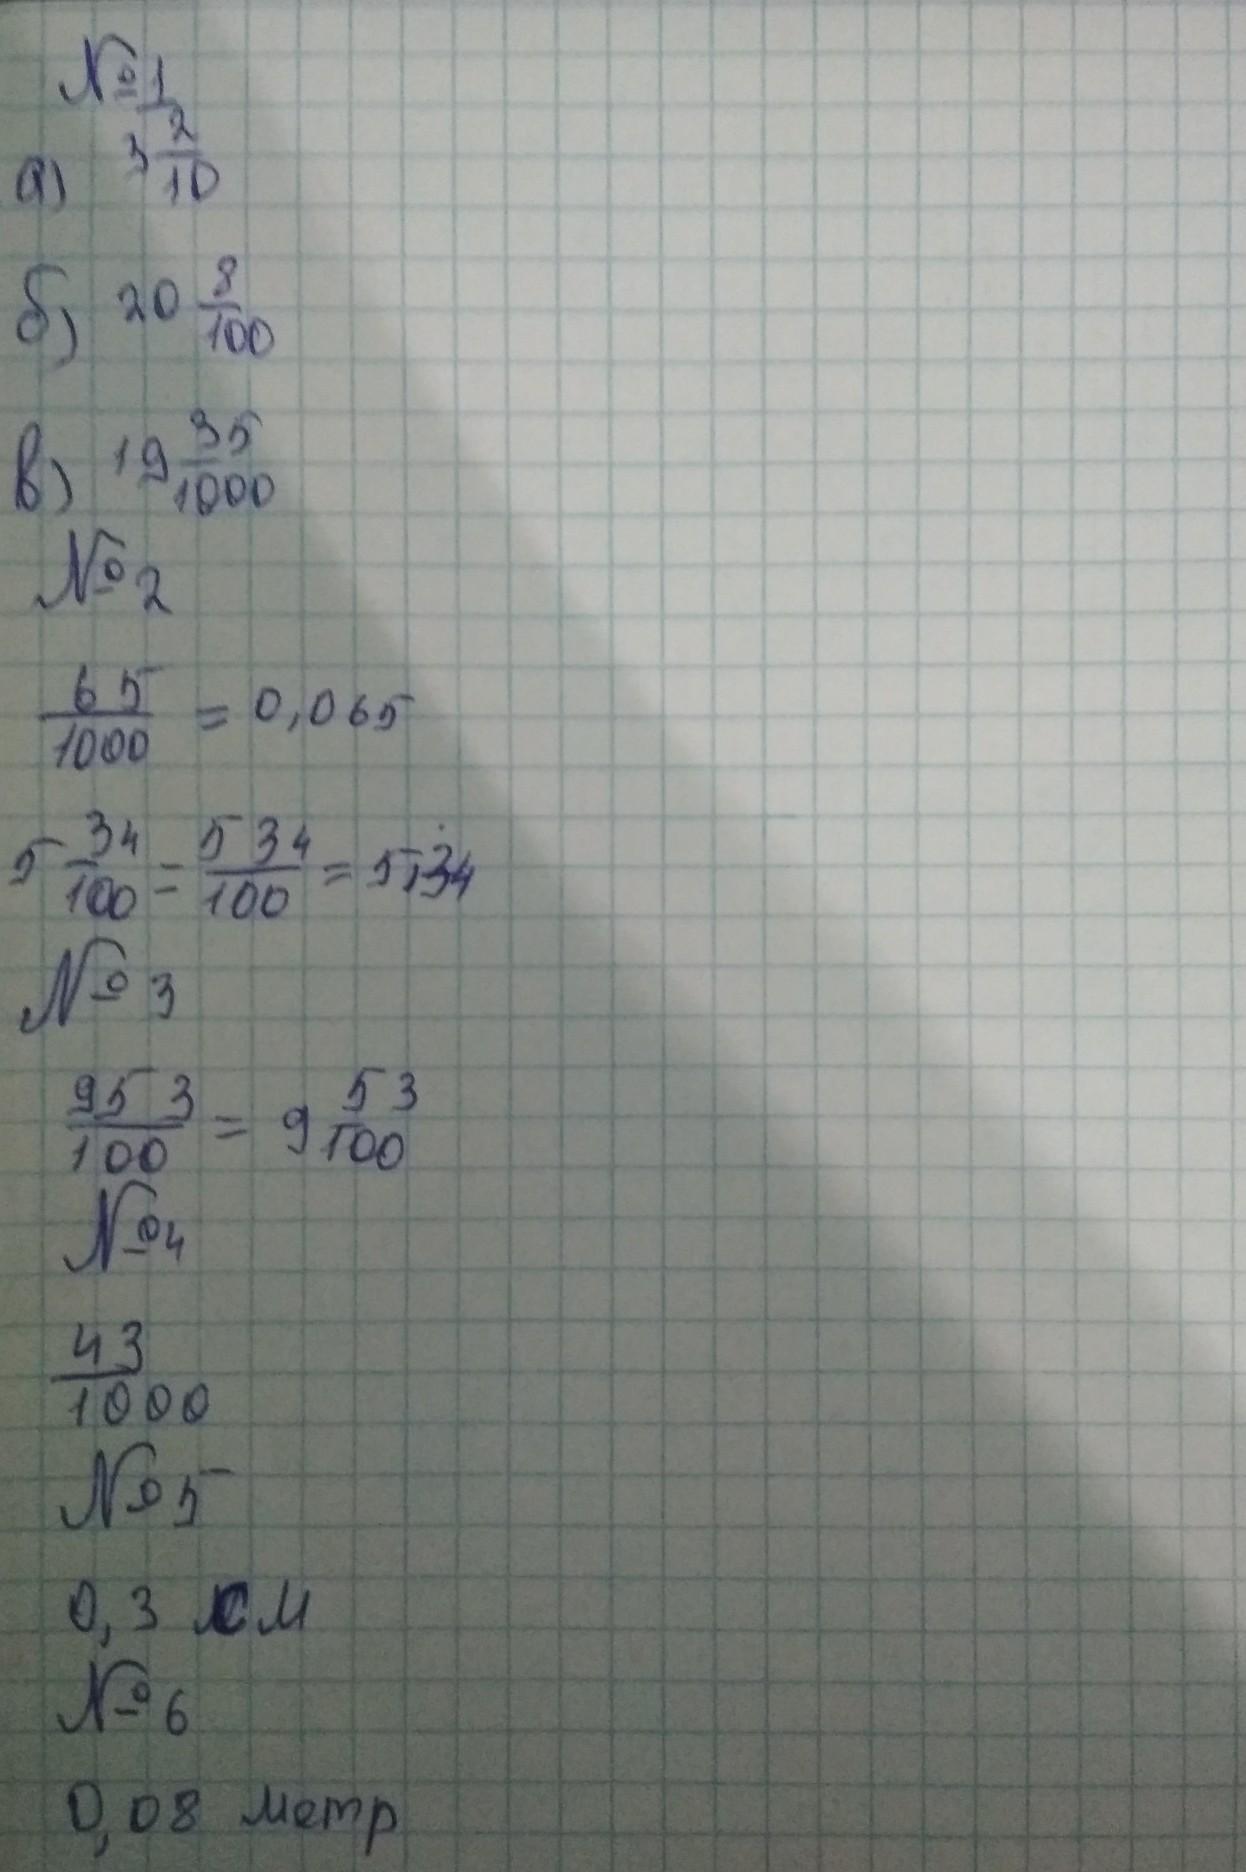 №1
а) 3 2/10
б) 20 8/100
в) 19 35/1000
№2
65/1000 = 0,065
5 34/100 = 534/100 = 5,34
№3
953/100 = 9 53/100
№4
43/1000
№5
0,3 см
№6
0,08 метр